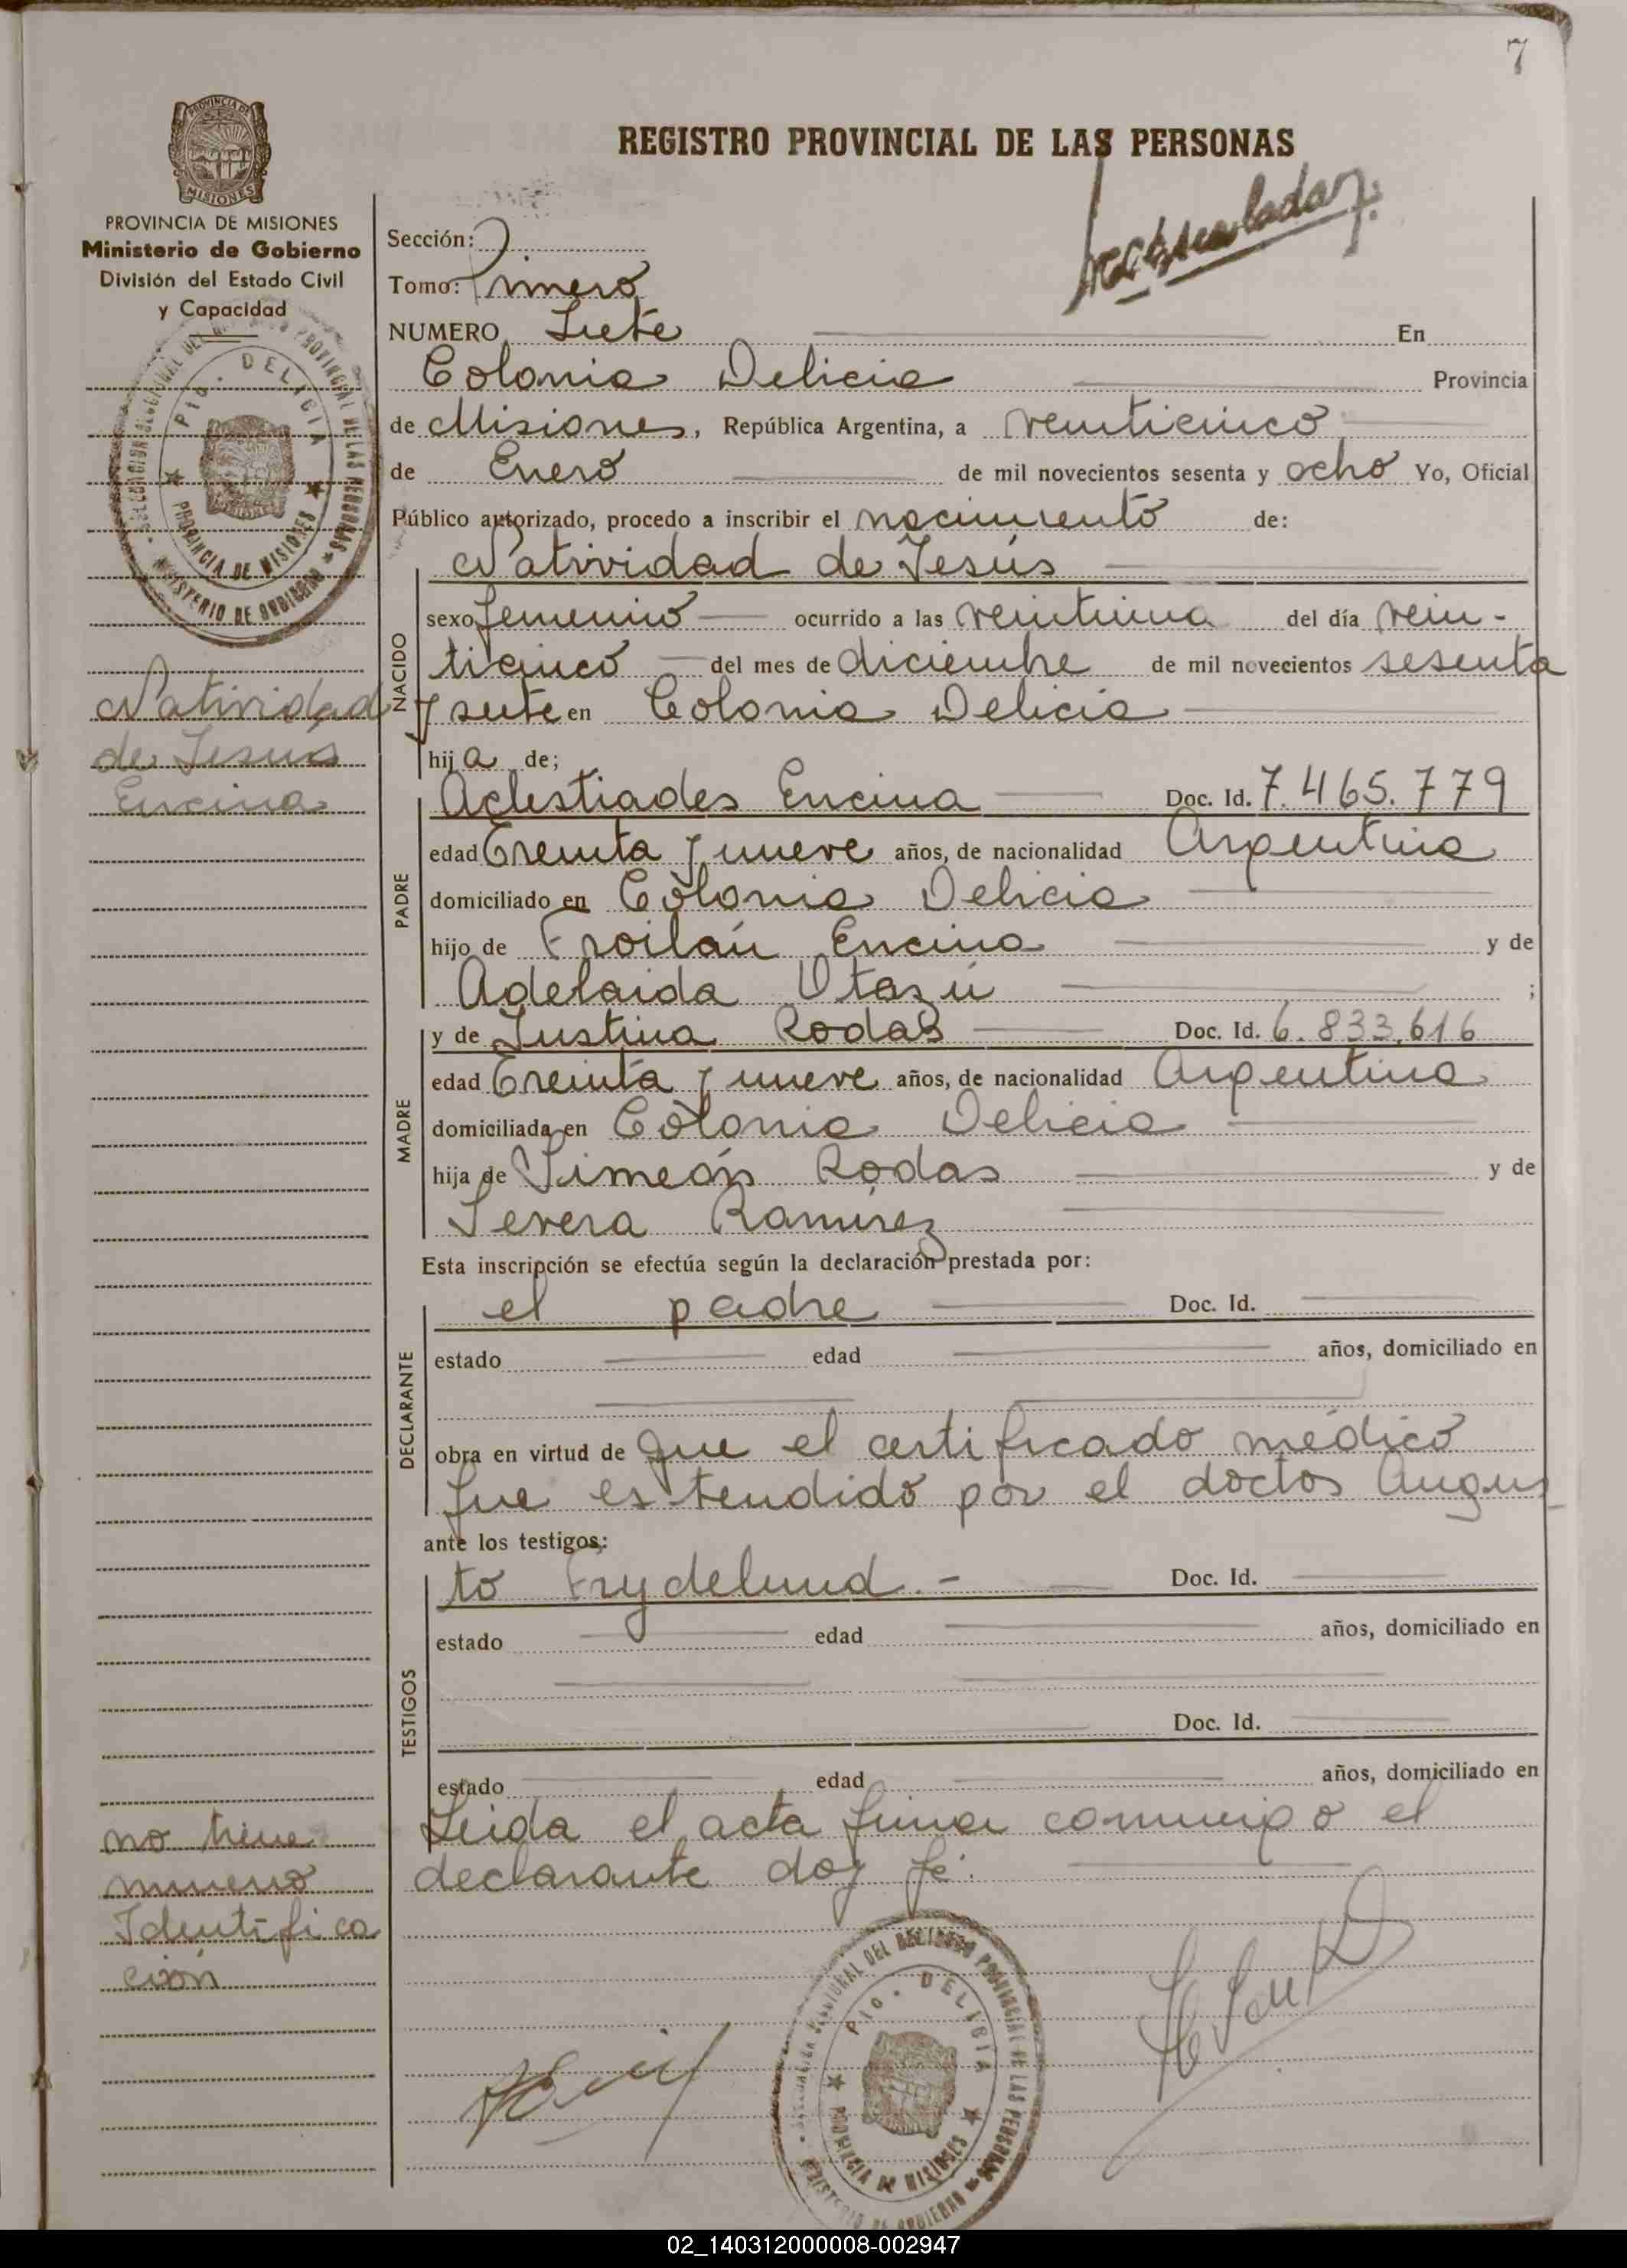 7
REGISTRO PROVINCIAL DE LAS PERSONAS
PROVINCIA DE
MISIONES
PROVINCIA DE MISIONES
Ministerio de Gobierno
División del Estado Civil
y Capacidad
Pto. DELICIA
PROVINCIA DE MISIONES
MINISTERIO DE GOBIERNO
Natividad
de Jesús
Encina
no tiene
numero
Identifica
ción
Sección:
Tomo: Primero
NUMERO Siete En
Colonia Delicia Provincia
de Misiones, República Argentina, a veinticinco
de Enero de mil novecientos sesenta y ocho Yo, Oficial
Público autorizado, procedo a inscribir el nacimiento de:
NACIDO
Natividad de Jesús
sexo femenino ocurrido a las veintiuna del día vein-
ticinco del mes de diciembre de mil novecientos sesenta
y siete en Colonia Delicia
hija de;
PADRE
Aclestiades Encina Doc. Id. 7.465.779
edad Treinta y nueve años, de nacionalidad Argentina
domiciliado en Colonia Delicia
hijo de Froilán Encina y de
Adelaida Otazú ;
MADRE
y de Justina Rodas Doc. Id. 6.833.616
edad Treinta y nueve años, de nacionalidad Argentina
domiciliada en Colonia Delicia
hija de Simeón Rodas y de
Severa Ramirez
Esta inscripción se efectúa según la declaración prestada por:
DECLARANTE
el padre Doc. Id.
estado edad años, domiciliado en
obra en virtud de que el certificado médico
fue estendido por el doctor Augus
ante los testigos:
TESTIGOS
to Frydelund.- Doc. Id.
estado edad años, domiciliado en
Doc. Id.
estado edad años, domiciliado en
Leida el acta firma conmigo el
declarante doy fé.
DEL REGISTRO PROVINCIAL DE LAS PERSONAS
Pto. DELICIA
PROVINCIA DE MISIONES
MINISTERIO DE GOBIERNO
02_140312000008-002947